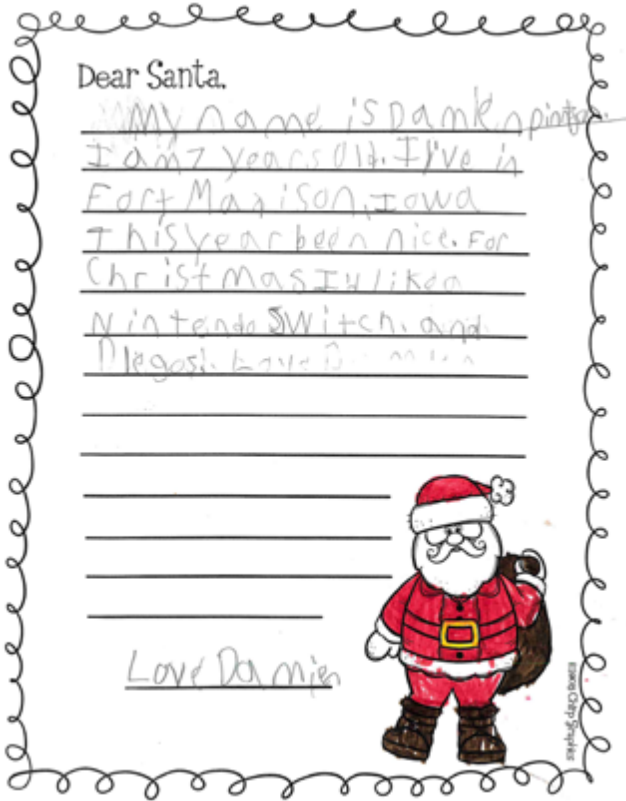 Dear Santa,
My name is Damien
I am 7 years old. I live in
Fort Madison, Iowa
This year been nice. For
Christmas I'd like a
Nintendo Switch. and
Love
Love Damien
©2015 Chirp Graphics